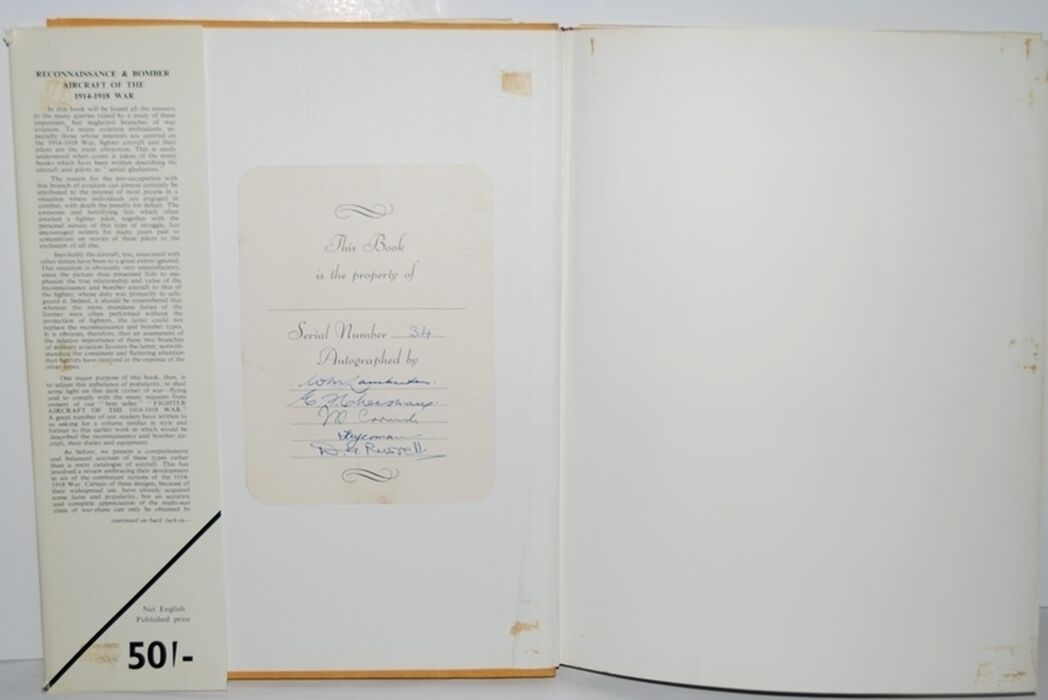 RECONNAISSANCE & BOMBER
AIRCRAFT OF THE
1914-1918 WAR
In this book will be found all the answers
to the many queries raised by a study of these
important, but neglected branches of war
aviation. To many aviation enthusiasts, es-
pecially those whose interests are centred on
the 1914-18 War, fighter aircraft and their
pilots are the main attraction. This is easily
understood when count is taken of the many
books which have been written describing the
aircraft and pilots as "aerial gladiators."
The reason for the pre-occupation with
this branch of aviation can almost certainly be
attributed to the interest of most people in a
situation where individuals are engaged in
combat, with death the penalty for defeat. The
awesome and horrifying fate which often
awaited a fighter pilot, together with the
personal nature of this type of struggle, has
encouraged writers for many years past to
concentrate on stories of these pilots to the
exclusion of all else.
Inevitably the aircraft, too, associated with
other duties have been to a great extent ignored.
This situation is obviously very unsatisfactory,
since the picture thus presented fails to em-
phasize the true relationship and value of the
reconnaissance and bomber aircraft to that of
the fighter, whose duty was primarily to safe-
guard it. Indeed, it should be remembered that
whereas the more mundane duties of the
former were often performed without the
protection of fighters, the latter could not
replace the reconnaissance and bomber types.
It is obvious, therefore, that an assessment of
the relative importance of these two branches
of military aviation favours the latter, notwith-
standing the consistent and flattering attention
that fighters have received at the expense of the
other types.
One major purpose of this book, then, is
to adjust this unbalance of popularity, to shed
some light on this dark corner of war-flying
and to comply with the many requests from
owners of our "best seller" "FIGHTER
AIRCRAFT OF THE 1914-1918 WAR."
A great number of our readers have written to
us asking for a volume similar in style and
format to this earlier work in which would be
described the reconnaissance and bomber air-
craft, their duties and equipment.
As before, we present a comprehensive
and balanced account of these types rather
than a mere catalogue of aircraft. This has
involved a review embracing their development
in six of the combatant nations of the 1914-
1918 War. Certain of these designs, because of
their widespread use, have already acquired
some fame and popularity, but an accurate
and complete appreciation of the multi-seat
class of war-plane can only be obtained by
continued on back tuck-in—
Net English
Published price
50/-
This Book
is the property of
Serial Number 34
Autographed by
W M Lamberton.
E. F. Cheesman.
D. A. Russell.